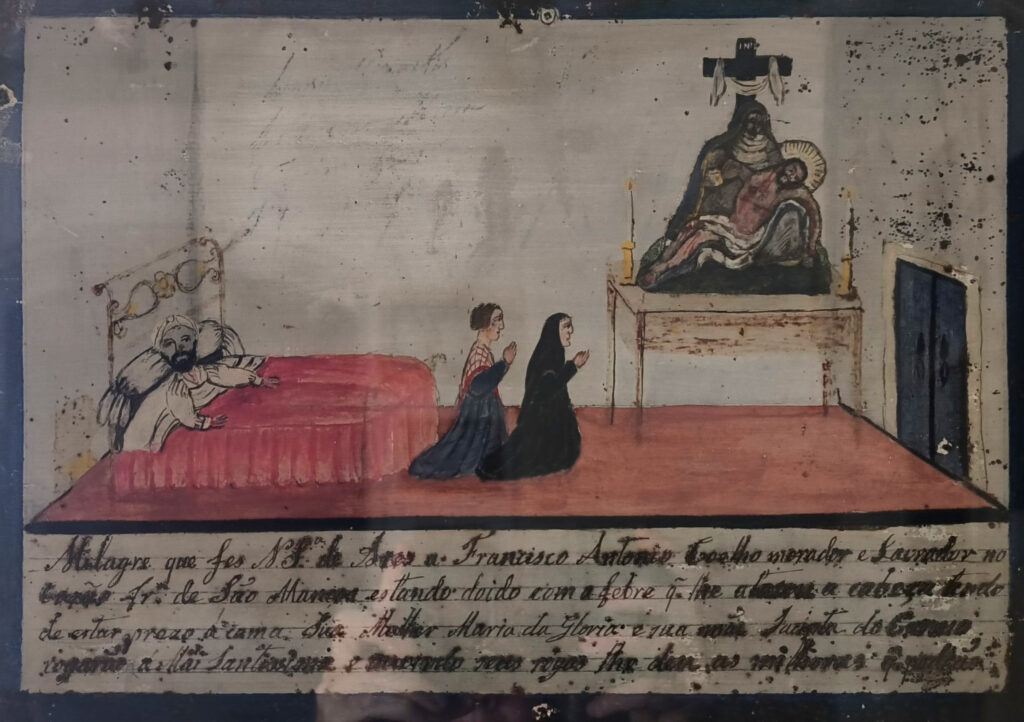 INRI
Milagre que fes N. Sr.ª de Ares a Francisco Antonio Coelho morador e Lavrador no
fr.ª de São Manços estando doido com a febre q. lhe atacou a cabeça tendo
de estar prezo á cama. Sua Molher Maria da Gloria e sua mãe Jacinta do
rogarão á Mãi Santissima e ouvindo seos rogos lhe deu as milhoras q.